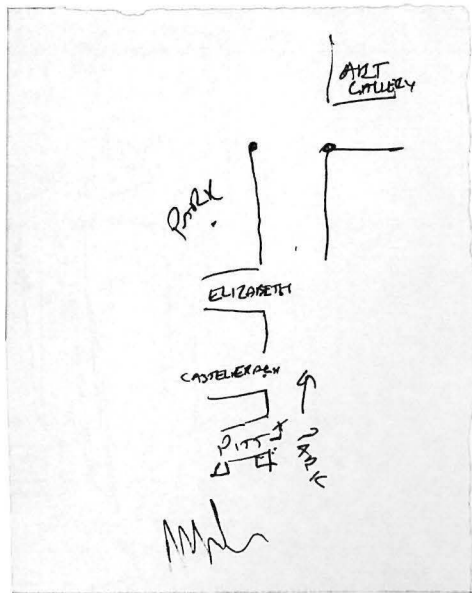 ART
GALLERY
PARK
ELIZABETH
CASTELEREAGH
PITT
PARK